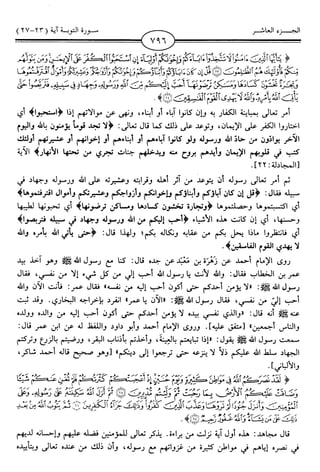 الجزء العاشر
٧٩٦
سورة التوبة آية (٢٣-٢٧)
﴿ يَا أَيُّهَا الَّذِينَ آمَنُوا لَا تَتَّخِذُوا آبَاءَكُمْ وَإِخْوَانَكُمْ أَوْلِيَاءَ إِنِ اسْتَحَبُّوا الْكُفْرَ عَلَى الْإِيمَانِ وَمَن يَتَوَلَّهُم
مِّنكُمْ فَأُولَٰئِكَ هُمُ الظَّالِمُونَ ۝ قُلْ إِن كَانَ آبَاؤُكُمْ وَأَبْنَاؤُكُمْ وَإِخْوَانُكُمْ وَأَزْوَاجُكُمْ وَعَشِيرَتُكُمْ وَأَمْوَالٌ اقْتَرَفْتُمُوهَا
وَتِجَارَةٌ تَخْشَوْنَ كَسَادَهَا وَمَسَاكِنُ تَرْضَوْنَهَا أَحَبَّ إِلَيْكُم مِّنَ اللَّهِ وَرَسُولِهِ وَجِهَادٍ فِي سَبِيلِهِ فَتَرَبَّصُوا حَتَّىٰ
يَأْتِيَ اللَّهُ بِأَمْرِهِ وَاللَّهُ لَا يَهْدِي الْقَوْمَ الْفَاسِقِينَ ۝ ﴾.
أمر تعالى بمباينة الكفار به وإن كانوا آباء أو أبناء، ونهى عن موالاتهم إذا ﴿استحبوا﴾ أي
اختاروا الكفر على الإيمان، وتوعد على ذلك كما قال تعالى: ﴿لا تجد قوماً يؤمنون بالله واليوم
الآخر يوادون من حادّ الله ورسوله ولو كانوا آباءهم أو أبناءهم أو إخوانهم أو عشيرتهم أولئك
كتب في قلوبهم الإيمان وأيدهم بروح منه ويدخلهم جنات تجري من تحتها الأنهار﴾ الآية
[المجادلة: ٢٢].
ثم أمر تعالى رسوله أن يتوعد من آثر أهله وقرابته وعشيرته على الله ورسوله وجهاد في
سبيله فقال: ﴿قل إن كان آباؤكم وأبناؤكم وإخوانكم وأزواجكم وعشيرتكم وأموال اقترفتموها﴾
أي اكتسبتموها وحصلتموها ﴿وتجارة تخشون كسادها ومساكن ترضونها﴾ أي تحبونها لطيبها
وحسنها، أي إن كانت هذه الأشياء ﴿أحب إليكم من الله ورسوله وجهاد في سبيله فتربصوا﴾
أي فانتظروا ماذا يحل بكم من عقابه ونكاله بكم؛ ولهذا قال: ﴿حتى يأتي الله بأمره والله
لا يهدي القوم الفاسقين﴾.
روى الإمام أحمد عن زُهْرَة بن مَعْبَد عن جده قال: كنا مع رسول الله ﷺ وهو آخذ بيد
عمر بن الخطاب فقال: والله لأنت يا رسول الله أحب إلي من كل شيء إلا من نفسي، فقال
رسول الله ﷺ: «لا يؤمن أحدكم حتى أكون أحب إليه من نفسه» فقال عمر: فأنت الآن والله
أحب إليّ من نفسي، فقال رسول الله ﷺ: «الآن يا عمر» انفرد بإخراجه البخاري. وقد ثبت
عنه ﷺ أنه قال: «والذي نفسي بيده لا يؤمن أحدكم حتى أكون أحب إليه من والده وولده
والناس أجمعين» [متفق عليه]. وروى الإمام أحمد وأبو داود واللفظ له عن ابن عمر قال:
سمعت رسول الله ﷺ يقول: «إذا تبايعتم بالعِينَة، وأخذتم بأذناب البقر، ورضيتم بالزرع وتركتم
الجهاد سلط الله عليكم ذلاً لا ينزعه حتى ترجعوا إلى دينكم» [وهو صحيح قاله أحمد شاكر،
والألباني].
﴿ لَقَدْ نَصَرَكُمُ اللَّهُ فِي مَوَاطِنَ كَثِيرَةٍ وَيَوْمَ حُنَيْنٍ إِذْ أَعْجَبَتْكُمْ كَثْرَتُكُمْ فَلَمْ تُغْنِ عَنكُمْ شَيْئًا
وَضَاقَتْ عَلَيْكُمُ الْأَرْضُ بِمَا رَحُبَتْ ثُمَّ وَلَّيْتُم مُّدْبِرِينَ ۝ ثُمَّ أَنزَلَ اللَّهُ سَكِينَتَهُ عَلَىٰ رَسُولِهِ وَعَلَى
الْمُؤْمِنِينَ وَأَنزَلَ جُنُودًا لَّمْ تَرَوْهَا وَعَذَّبَ الَّذِينَ كَفَرُوا وَذَٰلِكَ جَزَاءُ الْكَافِرِينَ ۝ ثُمَّ يَتُوبُ اللَّهُ مِن بَعْدِ
ذَٰلِكَ عَلَىٰ مَن يَشَاءُ وَاللَّهُ غَفُورٌ رَّحِيمٌ ۝ ﴾.
قال مجاهد: هذه أول آية نزلت من براءة. يذكر تعالى للمؤمنين فضله عليهم وإحسانه لديهم
في نصره إياهم في مواطن كثيرة من غزواتهم مع رسوله، وأن ذلك من عنده تعالى وبتأييده